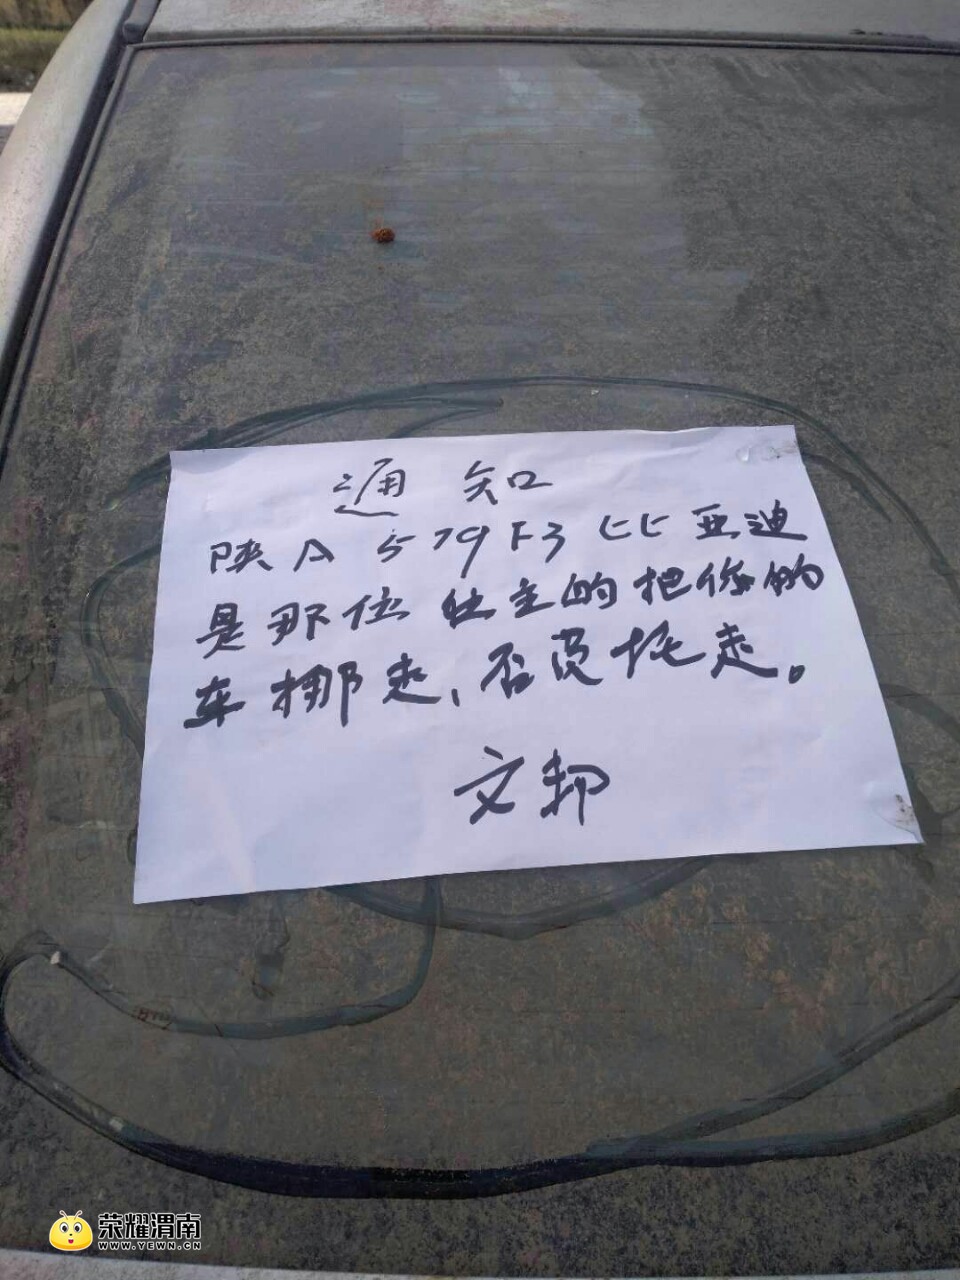 通知
陕A579F3比亚迪
是那位业主的把你的
车挪走、否责托走。
文邦
荣耀渭南
WWW.YEWN.CN